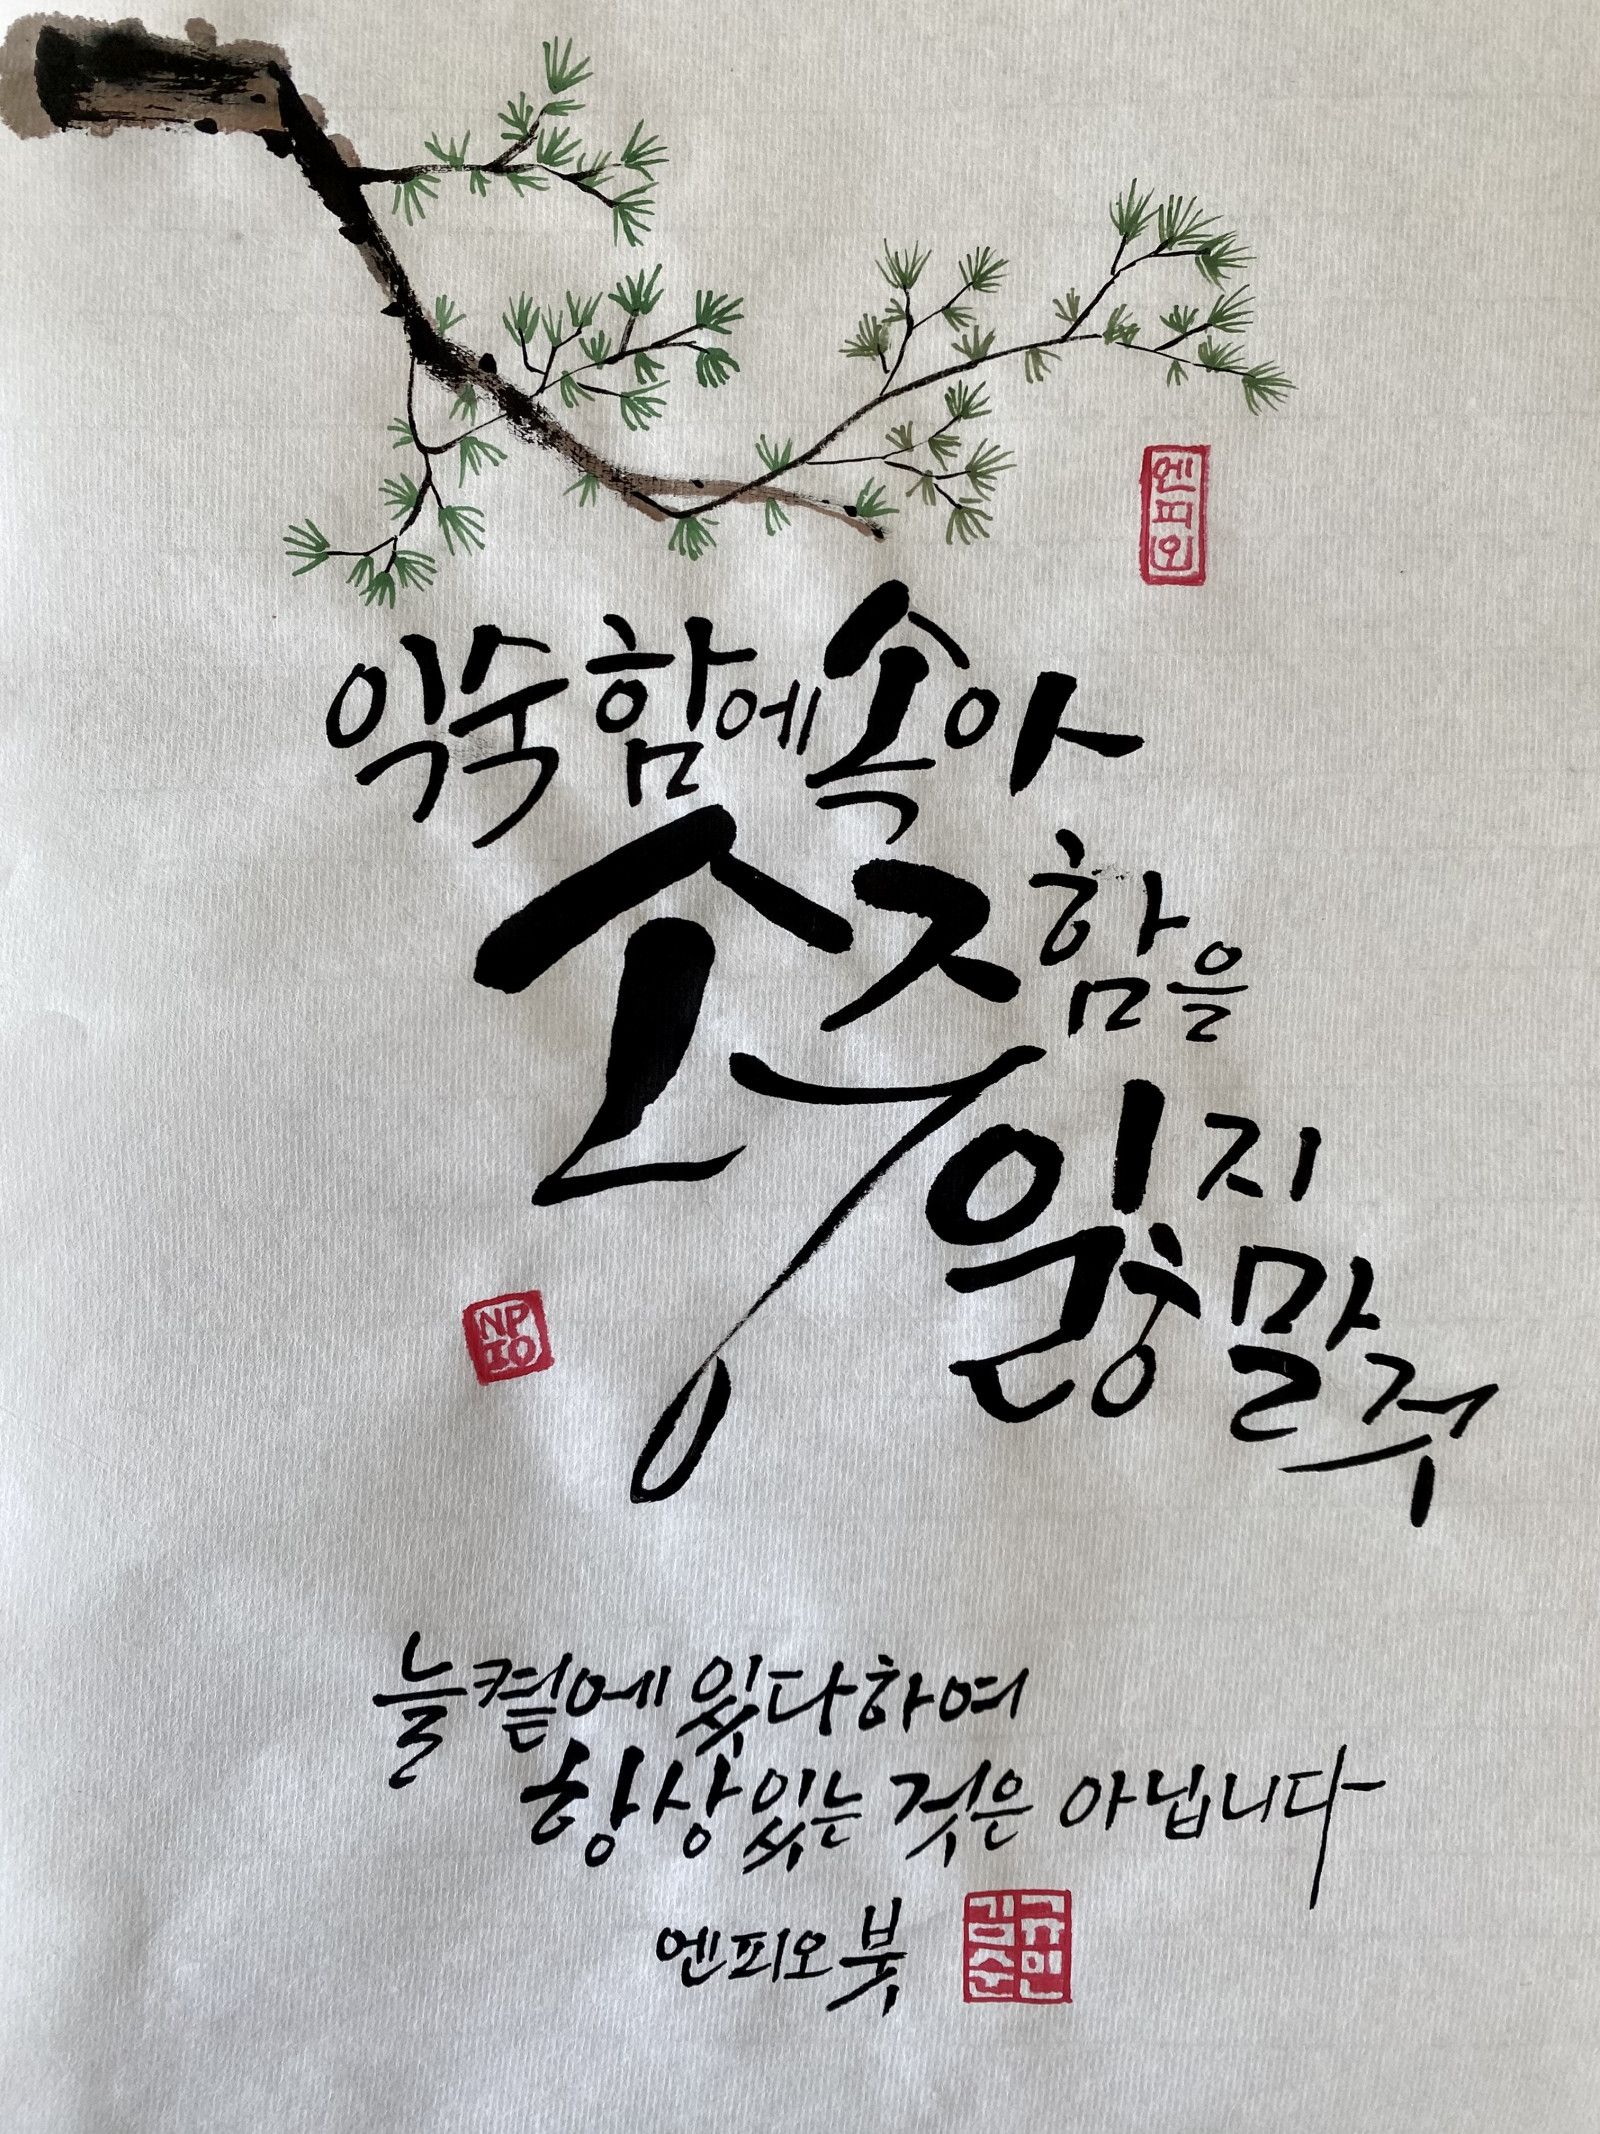 엔피오
익숙함에 속아
소중함을
잃지 말주
NP
IO
늘 곁에 있다 하여
항상 있는 것은 아닙니다
엔피오 붓